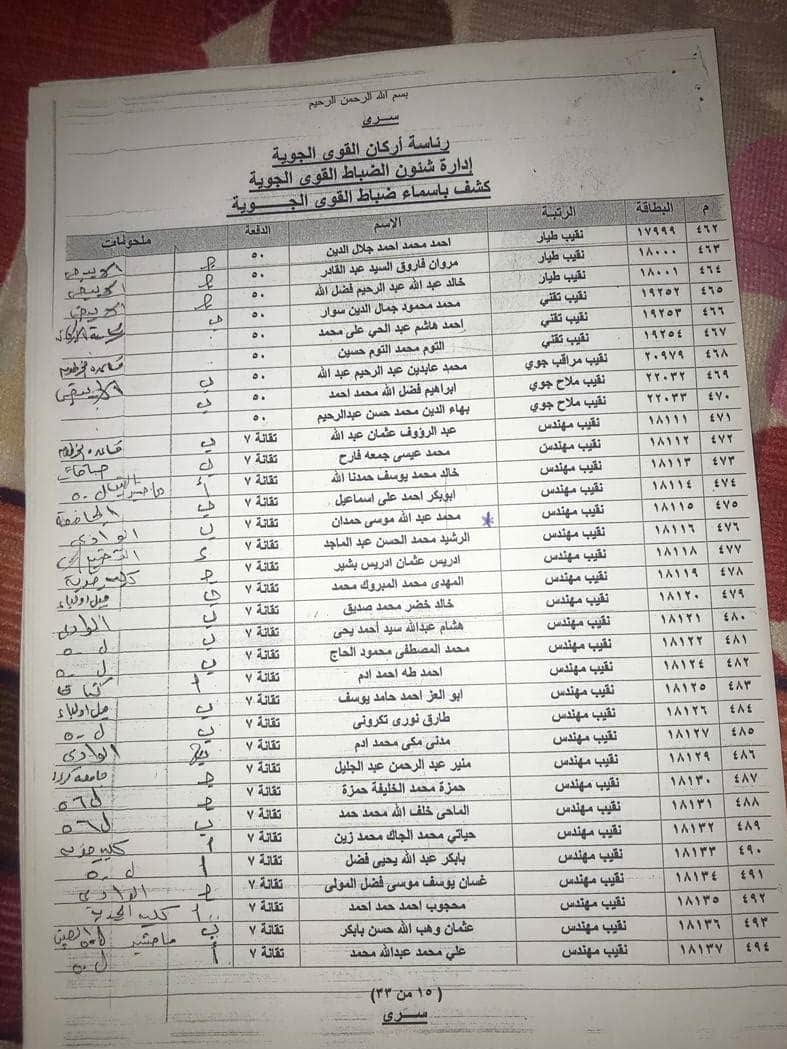 بسم الله الرحمن الرحيم
سري
رئاسة أركان القوى الجوية
إدارة شئون الضباط القوى الجوية
كشف باسماء ضباط القوى الجـــــوية
م البطاقة الرتبة الاسم الدفعة ملحوظات
٤٦٢ ١٧٩٩٩ نقيب طيار احمد محمد احمد جلال الدين ٥٠
٤٦٣ ١٨٠٠٠ نقيب طيار مروان فاروق السيد عبد القادر ٥٠
٤٦٤ ١٨٠٠١ نقيب طيار خالد عبد الله عبد الرحيم فضل الله ٥٠
٤٦٥ ١٩٢٥٢ نقيب تقني محمد محمود جمال الدين سوار ٥٠
٤٦٦ ١٩٢٥٣ نقيب تقني احمد هاشم عبد الحي على محمد ٥٠
٤٦٧ ١٩٢٥٤ نقيب تقني التوم محمد التوم حسين ٥٠
٤٦٨ ٢٠٩٧٩ نقيب مراقب جوي محمد عابدين عبد الرحيم عبد الله ٥٠
٤٦٩ ٢٢٠٣٢ نقيب ملاح جوي ابراهيم فضل الله محمد احمد ٥٠
٤٧٠ ٢٢٠٣٣ نقيب ملاح جوي بهاء الدين محمد حسن عبدالرحيم ٥٠
٤٧١ ١٨١١١ نقيب مهندس عبد الرؤوف عثمان عبد الله تقانة ٧
٤٧٢ ١٨١١٢ نقيب مهندس محمد عيسى جمعه فارح تقانة ٧
٤٧٣ ١٨١١٣ نقيب مهندس خالد محمد يوسف حمدنا الله تقانة ٧
٤٧٤ ١٨١١٤ نقيب مهندس ابوبكر احمد على اسماعيل تقانة ٧
٤٧٥ ١٨١١٥ نقيب مهندس محمد عبد الله موسى حمدان تقانة ٧
٤٧٦ ١٨١١٦ نقيب مهندس الرشيد محمد الحسن عبد الماجد تقانة ٧ الوادي
٤٧٧ ١٨١١٨ نقيب مهندس ادريس عثمان ادريس بشير تقانة ٧
٤٧٨ ١٨١١٩ نقيب مهندس المهدى محمد المبروك محمد تقانة ٧
٤٧٩ ١٨١٢٠ نقيب مهندس خالد خضر محمد صديق تقانة ٧
٤٨٠ ١٨١٢١ نقيب مهندس هشام عبدالله سيد أحمد يحى تقانة ٧ الوادي
٤٨١ ١٨١٢٢ نقيب مهندس محمد المصطفى محمود الحاج تقانة ٧
٤٨٢ ١٨١٢٤ نقيب مهندس احمد طه احمد ادم تقانة ٧
٤٨٣ ١٨١٢٥ نقيب مهندس ابو العز احمد حامد يوسف تقانة ٧
٤٨٤ ١٨١٢٦ نقيب مهندس طارق نورى تكرونى تقانة ٧
٤٨٥ ١٨١٢٧ نقيب مهندس مدنى مكى محمد ادم تقانة ٧ الوادى
٤٨٦ ١٨١٢٩ نقيب مهندس منير عبد الرحمن عبد الجليل تقانة ٧
٤٨٧ ١٨١٣٠ نقيب مهندس حمزة محمد الخليفة حمزة تقانة ٧
٤٨٨ ١٨١٣١ نقيب مهندس الماحى خلف الله محمد حمد تقانة ٧
٤٨٩ ١٨١٣٢ نقيب مهندس حياتي محمد الجاك محمد زين تقانة ٧
٤٩٠ ١٨١٣٣ نقيب مهندس بابكر عبد الله يحيى فضل تقانة ٧
٤٩١ ١٨١٣٤ نقيب مهندس غسان يوسف موسى فضل المولى تقانة ٧ الوادي
٤٩٢ ١٨١٣٥ نقيب مهندس محجوب احمد حمد احمد تقانة ٧
٤٩٣ ١٨١٣٦ نقيب مهندس عثمان وهب الله حسن بابكر تقانة ٧
٤٩٤ ١٨١٣٧ نقيب مهندس علي محمد عبدالله محمد تقانة ٧
(١٥ من ٣٣)
سري